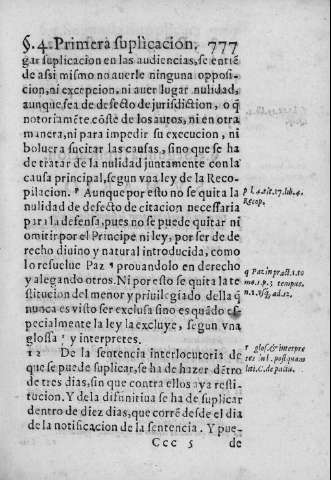 §. 4. Primera suplicacion. 777
gar suplicacion en las audiencias, se entiẽ
de assi mismo no auerle ninguna oposi-
cion, ni excepcion, ni auer lugar nulidad,
aunque sea de defecto de jurisdiction, o q̃
notoriamẽte cõste de los autos, ni en otra
manera, ni para impedir su execucion, ni
boluer a sucitar las causas, sino que se ha
de tratar de la nulidad juntamente con la
causa principal, segun vna ley de la Reco-
pilacion. p Aunque por esto no se quita la
nulidad de defecto de citacion necessaria
para la defensa, pues no se puede quitar ni
omitir por el Principe ni ley, por ser de de-
recho diuino y natural introducida, como
lo resuelue Paz q prouandolo en derecho
y alegando otros. Ni por esto se quita la re
stitucion del menor y priuilegiado della q̃
nunca es visto ser exclusa sino es quãdo es-
pecialmente la ley la excluye, segun vna
glossa r y interpretes.
12 De la sentencia interlocutoria de
que se puede suplicar, se ha de hazer dẽtro
de tres dias, sin que contra ellos aya resti-
tucion. Y de la difinitiua se ha de suplicar
dentro de diez dias, que corrẽ desde el dia
de la notificacion de la sentencia. Y pue-
Ccc 5 de
p l. 4. tit. 17. lib. 4.
Recop.
q Paz in pract. 1. to
mo. 1. p. 3 tempus.
n. 1. vsq; ad. 12.
r glos. & interpre
tes in l. post quam
liti. C. de pactis.